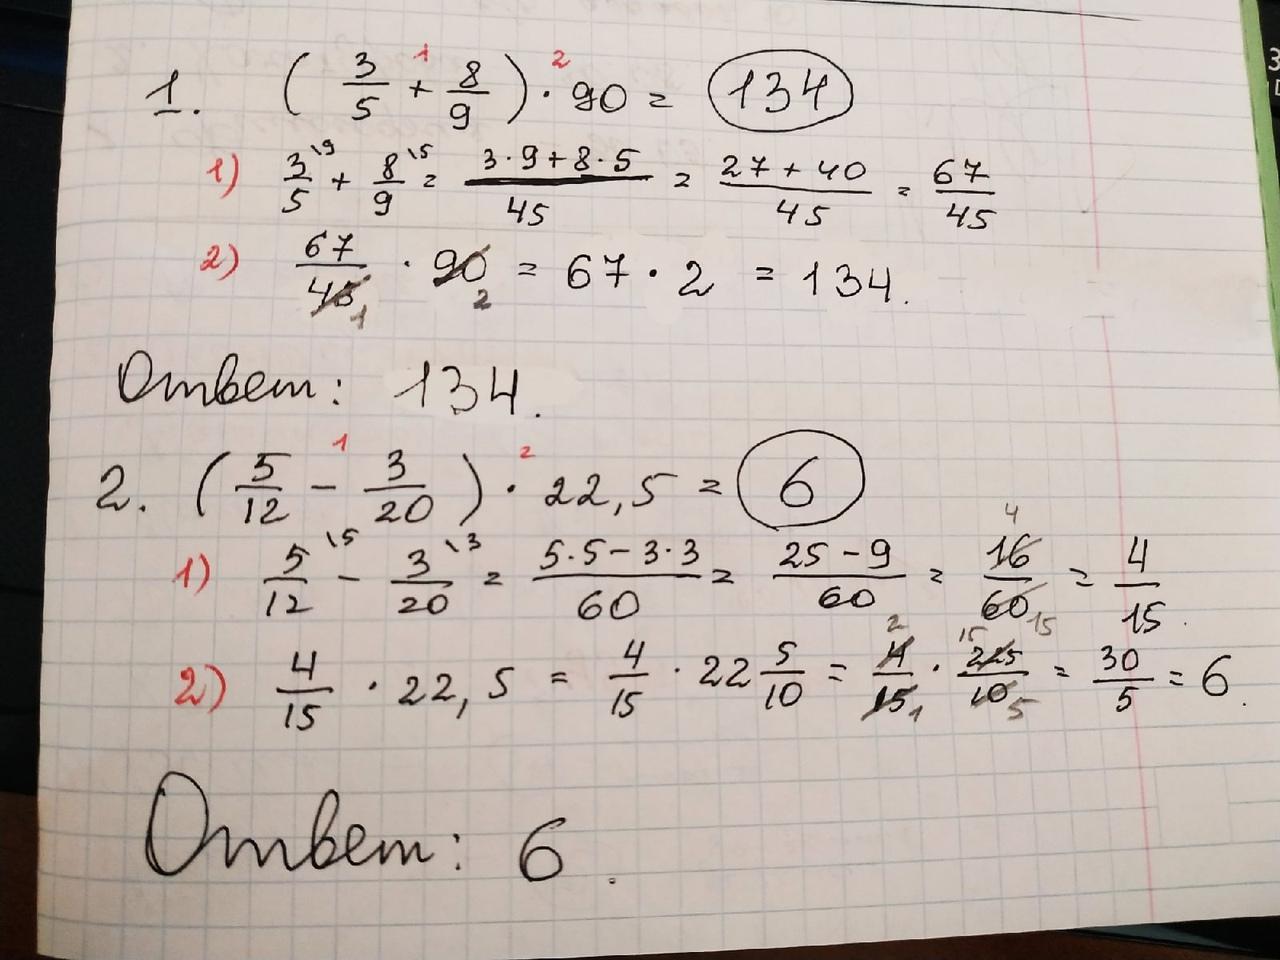 1. (3/5 + 8/9) · 90 = 134
1 2
1) 3/5 \9 + 8/9 \5 = (3·9+8·5)/45 = (27+40)/45 = 67/45
2) 67/45 · 90 = 67 · 2 = 134.
1 2
Ответ: 134.
1 2
2. (5/12 − 3/20) · 22,5 = 6
1) 5/12 \5 − 3/20 \3 = (5·5−3·3)/60 = (25−9)/60 = 16/60 = 4/15.
4 15
2) 4/15 · 22,5 = 4/15 · 22 5/10 = 4/15 · 225/10 = 30/5 = 6.
2 15 1 5
Ответ: 6.